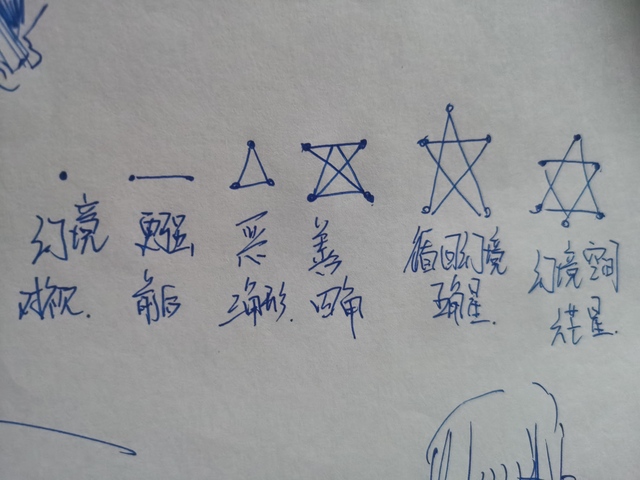 幻境
对视.
更强
前后
恶
三角形.
善
四角
循回幻境
五角星.
幻境空间
六芒星.